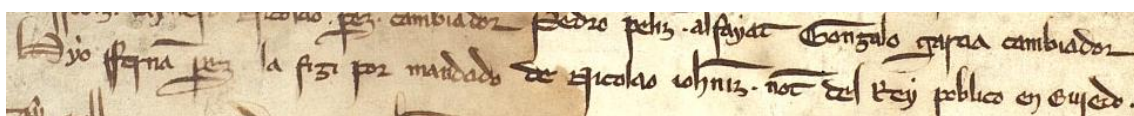 Nicolao perz cambiador Pedro peliz . alfayat Gongalo garcia cambiador
Hyo ffernã perz la fizi por mandado de Nicolao iohniz . not del Rey poblico en Ouiedo .